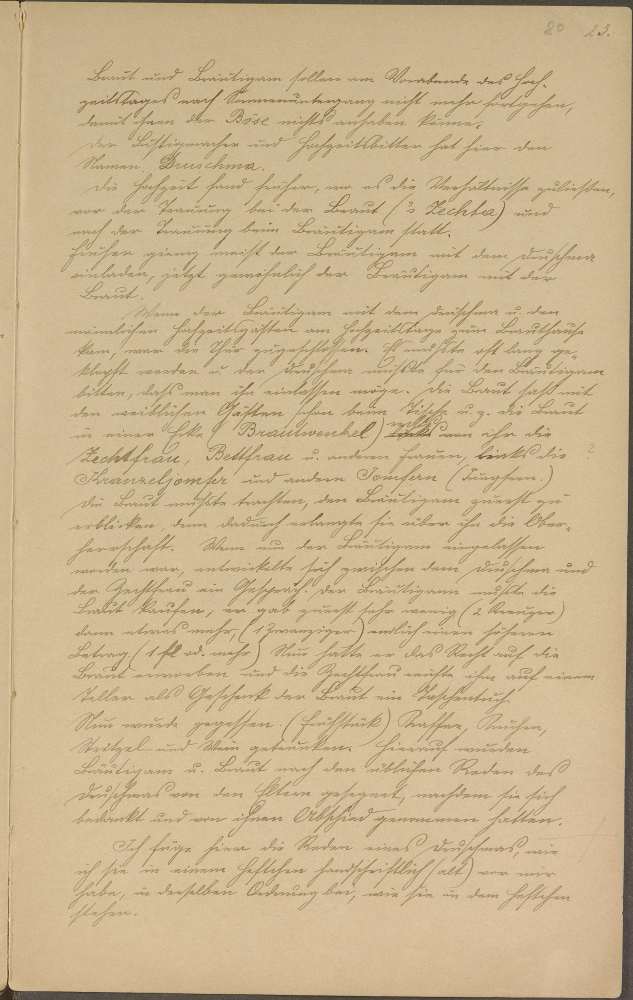 80 23.
Braut und Bräutigam sollen am Vorabende des Hoch-
zeitstages nach Sonnenuntergang nicht mehr fortgehen,
damit ihnen der Böse nichts anhaben könne.
Der Lustigmacher und Hochzeitsbitter hat hier den
Namen Druschma.
Die Hochzeit fand früher, wo es die Verhältnisse zuließen,
vor der Trauung bei der Braut ('s Zechta) und
nach der Trauung beim Bräutigam statt.
Früher gieng meist der Bräutigam mit dem Druschma
einladen, jetzt gewöhnlich der Bräutigam mit der
Braut.
Wenn der Bräutigam mit dem Druschma u. den
männlichen Hochzeitsgästen am Hochzeitstage zum Brauthause
kam, war die Thür zugeschlossen. Es mußte oft lang ge-
klopft werden u. der Druschma mußte für den Bräutigam
bitten, daß man ihn einlassen möge. Die Braut saß mit
den weiblichen Gästen schon beim Tische u. z. die Braut
in einer Eke (Brautwenkel) rechts von ihr die
Zechtfrau, Bettfrau u. anderen Frauen, links die ?
Kranzeljomfer und andern Jomfern (Jungfern.)
Die Braut mußte trachten, den Bräutigam zuerst zu
erblicken, denn dadurch erlangte sie über ihn die Ober-
herrschaft. Wenn nun der Bräutigam eingelassen
worden war, entwickelte sich zwischen dem Druschma und
der Zechtfrau ein Gespräch. Der Bräutigam mußte die
Braut kaufen, er gab zuerst sehr wenig (2 Kreuzer)
dann etwas mehr, (1 Zwanziger) endlich einen höheren
Betrag, (1 fl od. mehr) Nun hatte er das Recht auf die
Braut erworben und die Zechtfrau reichte ihm auf einem
Teller als Geschenk der Braut ein Taschentuch.
Nun wurde gegessen. (Frühstük) Kaffee, Kuchen,
Streitzel und Wein getrunken. Hierauf wurden
Bräutigam u. Braut nach den üblichen Reden des
Druschmas von den Eltern gesegnet, nachdem sie sich
bedankt und von ihnen Abschied genommen hatten.
Ich füge hier die Reden eines Druschmas, wie
ich sie in einem Heftchen handschriftlich (alt) vor mir
habe, in derselben Ordnung bei, wie sie in dem Heftchen
stehen.